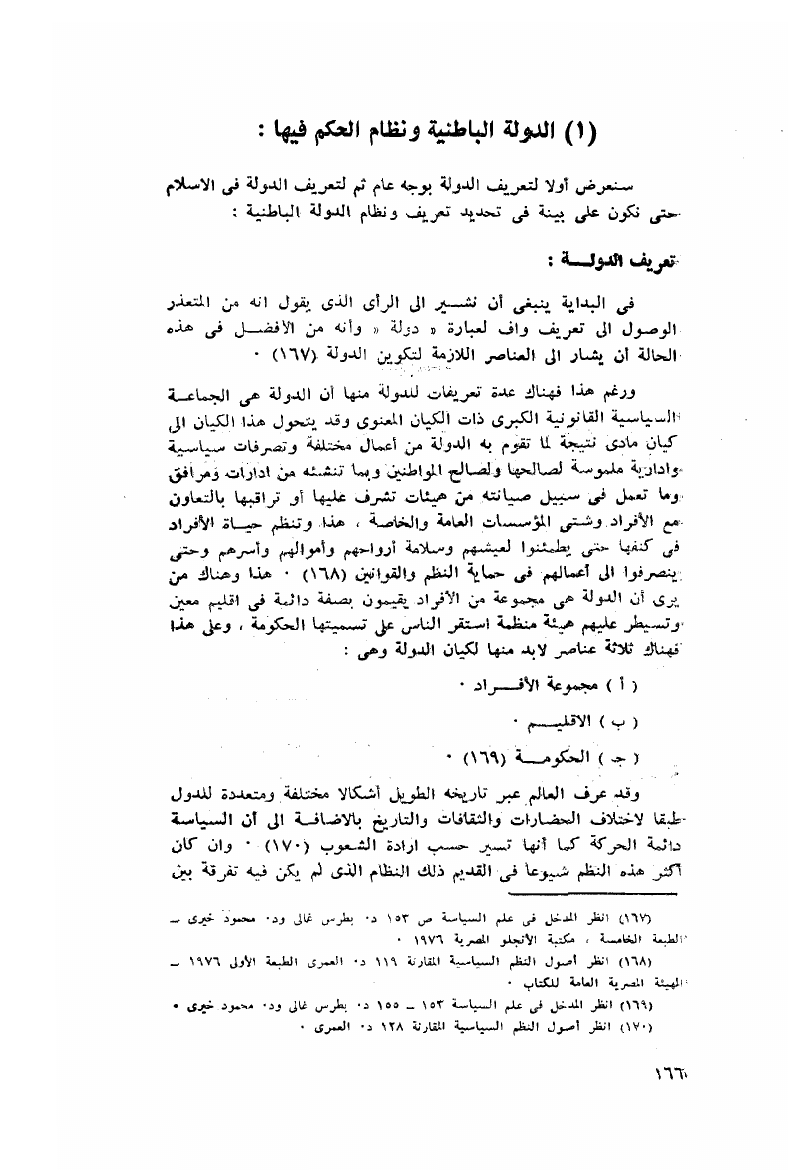 (١) الدولة الباطنية ونظام الحكم فيها :
سنعرض أولا لتعريف الدولة بوجه عام ثم لتعريف الدولة فى الاسلام
حتى نكون على بينة فى تحديد تعريف ونظام الدولة الباطنية :
تعريف الدولــة :
فى البداية ينبغى أن نشــير الى الرأى الذى يقول انه من المتعذر
الوصول الى تعريف واف لعبارة « دولة » وأنه من الأفضــل فى هذه
الحالة أن يشار الى العناصر اللازمة لتكوين الدولة (١٦٧) ٠
ورغم هذا فهناك عدة تعريفات للدولة منها أن الدولة هى الجماعــة
السياسية القانونية الكبرى ذات الكيان المعنوى وقد يتحول هذا الكيان الى
كيان مادى نتيجة لما تقوم به الدولة من أعمال مختلفة وتصرفات سياسية
وادارية ملموسة لصالحها ولصالح المواطنين وبما تنشئه من ادارات ومرافق
وما تعمل فى سبيل صيانته من هيئات تشرف عليها أو تراقبها بالتعاون
مع الأفراد وشتى المؤسسات العامة والخاصة ، هذا وتنظم حيــاة الأفراد
فى كنفها حتى يطمئنوا لعيشهم وسلامة أرواحهم وأموالهم وأسرهم وحتى
ينصرفوا الى أعمالهم فى حماية النظم والقوانين (١٦٨) ٠ هذا وهناك من
يرى أن الدولة هى مجموعة من الأفراد يقيمون بصفة دائمة فى اقليم معين
وتسيطر عليهم هيئة منظمة استقر الناس على تسميتها الحكومة ، وعلى هذا
فهناك ثلاثة عناصر لابد منها لكيان الدولة وهى :
( أ ) مجموعة الأفــراد ٠
( ب ) الاقليــم ٠
( جـ ) الحكومــة (١٦٩) ٠
وقد عرف العالم عبر تاريخه الطويل أشكالا مختلفة ومتعددة للدول
طبقا لاختلاف الحضارات والثقافات والتاريخ بالاضافــة الى أن السياسة
دائمة الحركة كما أنها تسير حسب ارادة الشعوب (١٧٠) ٠ وان كان
أكثر هذه النظم شيوعا فى القديم ذلك النظام الذى لم يكن فيه تفرقة بين
(١٦٧) انظر المدخل فى علم السياسة ص ١٥٣ د٠ بطرس غالى ود٠ محمود خيرى ــ
الطبعة الخامسة ، مكتبة الأنجلو المصرية ١٩٧٦ ٠
(١٦٨) انظر أصول النظم السياسية المقارنة ١١٩ د٠ العمرى الطبعة الأولى ١٩٧٦ ــ
الهيئة المصرية العامة للكتاب ٠
(١٦٩) انظر المدخل فى علم السياسة ١٥٣ ــ ١٥٥ د٠ بطرس غالى ود٠ محمود خيرى ٠
(١٧٠) انظر أصول النظم السياسية المقارنة ١٢٨ د٠ العمرى ٠
١٦٦